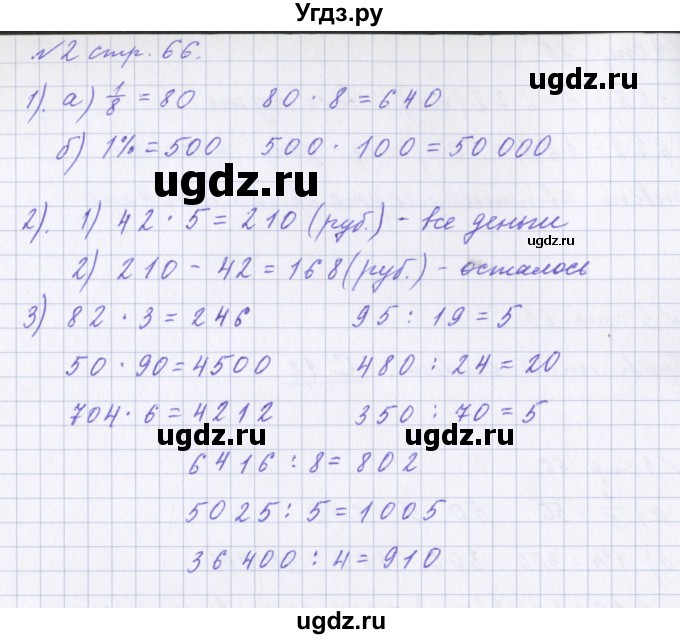 Угдз.ру
№2 стр. 66.
1). а) 1/8 = 80 80 · 8 = 640
б) 1% = 500 500 · 100 = 50 000
ugdz.ru
2). 1) 42 · 5 = 210 (руб.) - все деньги
ugdz.ru
2) 210 - 42 = 168 (руб.) - осталось
3) 82 · 3 = 246 95 : 19 = 5
50 · 90 = 4500 480 : 24 = 20
704 · 6 = 4212 350 : 70 = 5
ugdz.ru ugdz.ru
6416 : 8 = 802
5025 : 5 = 1005
36 400 : 4 = 910
ugdz.ru